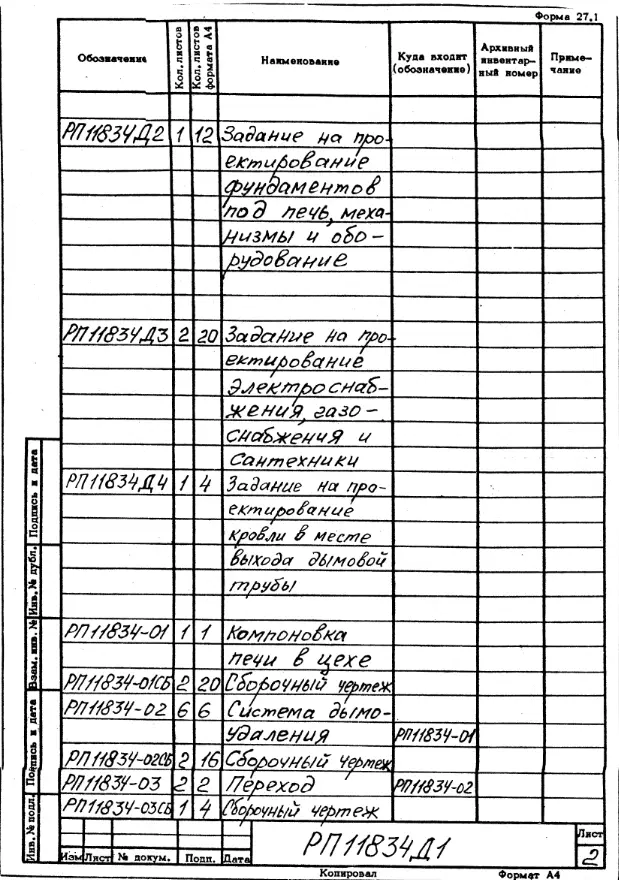 Форма 27.1
Обозначение Кол. листов Кол. листов формата А4 Наименование Куда входит (обозначение) Архивный инвентар-ный номер Приме-чание
РП11834Д2 1 12 Задание на про-
ектирование
фундаментов
под печь, меха-
низмы и обо-
рудование
РП11834Д3 2 20 Задание на про-
ектирование
электроснаб-
жения, газо-
снабжения и
сантехники
РП11834Д4 1 4 Задание на про-
ектирование
кровли в месте
выхода дымовой
трубы
РП11834-01 1 1 Компоновка
печи в цехе
РП11834-01СБ 2 20 Сборочный чертеж
РП11834-02 6 6 Система дымо-
удаления РП11834-01
РП11834-02СБ 2 16 Сборочный чертеж
РП11834-03 2 2 Переход РП11834-02
РП11834-03СБ 1 4 Сборочный чертеж
Инв. № подл. Подпись и дата Взам. инв. № Инв. № дубл. Подпись и дата
РП11834Д1
Лист
2
Изм Лист № докум. Подп. Дата
Копировал Формат А4